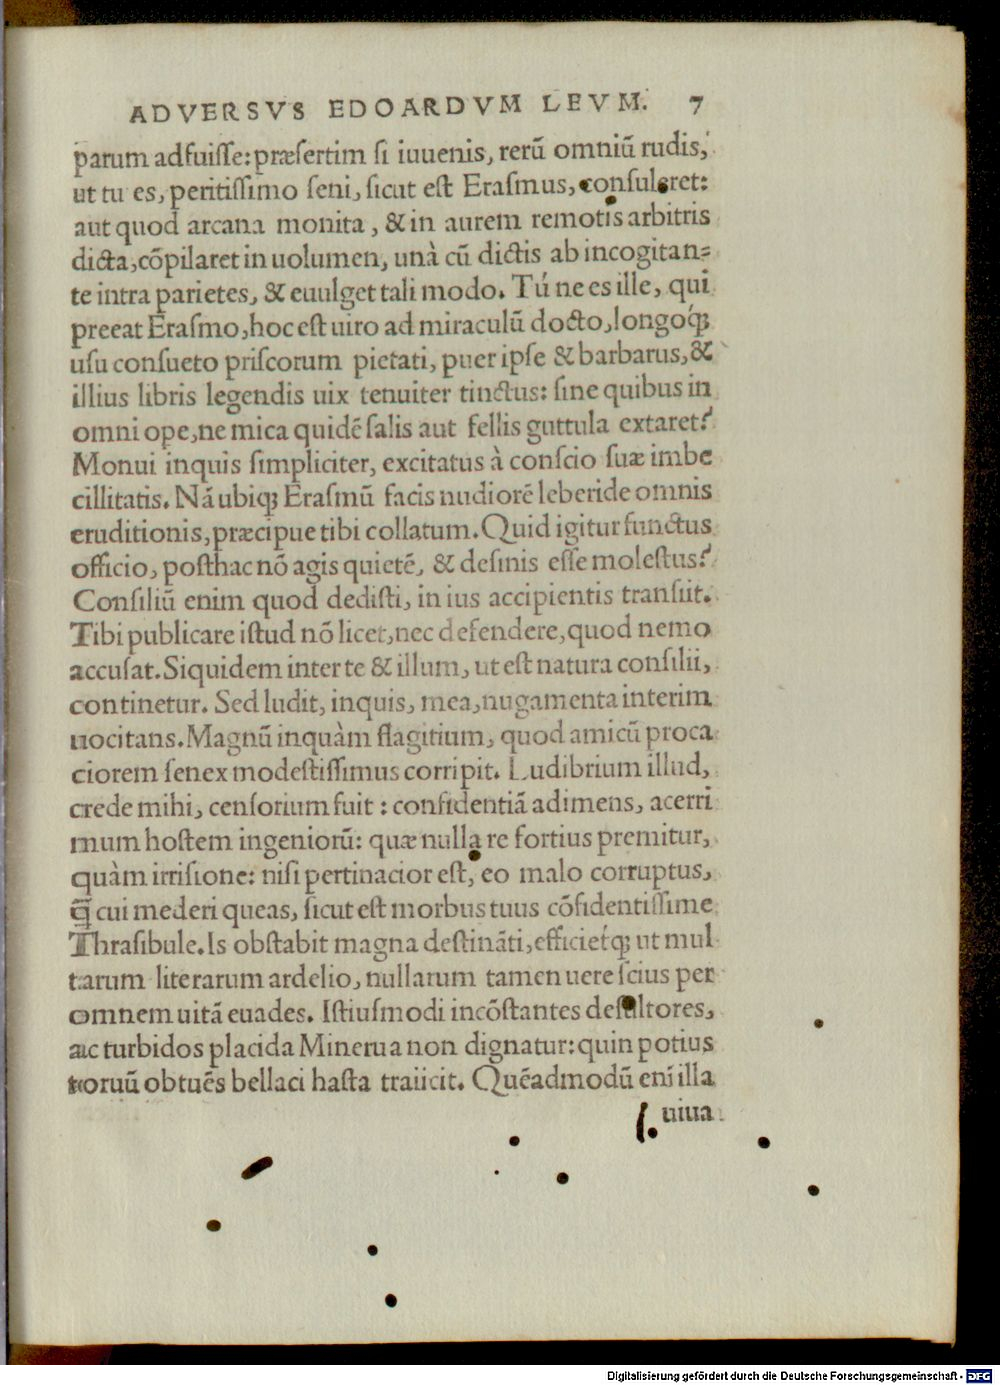 ADVERSVS EDOARDVM LEVM. 7
parum adfuiſſe: præſertim ſi iuuenis, rerũ omniũ rudis,
ut tu es, peritiſſimo ſeni, ſicut eſt Eraſmus, conſuleret:
aut quod arcana monita, & in aurem remotis arbitris
dicta, cõpilaret in uolumen, unà cũ dictis ab incogitan-
te intra parietes, & euulget tali modo. Tú ne es ille, qui
preeat Eraſmo, hoc eſt uiro ad miraculũ docto, longoq́;
uſu conſueto priſcorum pietati, puer ipſe & barbarus, &
illius libris legendis uix tenuiter tinctus: ſine quibus in
omni ope, ne mica quidẽ ſalis aut fellis guttula extaret?
Monui inquis ſimpliciter, excitatus à conſcio ſuæ imbe
cillitatis. Nã ubiq; Eraſmũ facis nudiorẽ leberide omnis
eruditionis, præcipue tibi collatum. Quid igitur functus
officio, poſthac nõ agis quietẽ, & deſinis eſſe moleſtus?
Conſiliũ enim quod dediſti, in ius accipientis tranſiit.
Tibi publicare iſtud nõ licet, nec defendere, quod nemo
accuſat. Siquidem inter te & illum, ut eſt natura conſilii,
continetur. Sed ludit, inquis, mea, nugamenta interim
uocitans. Magnũ inquàm flagitium, quod amicũ proca
ciorem ſenex modeſtiſſimus corripit. Ludibrium illud,
crede mihi, cenſorium fuit: confidentiã adimens, acerri
mum hoſtem ingeniorũ: quæ nulla re fortius premitur,
quàm irriſione: niſi pertinacior eſt, eo malo corruptus,
q̃ cui mederi queas, ſicut eſt morbus tuus cõfidentiſſime
Thraſibule. Is obſtabit magna deſtinãti, efficietq́; ut mul
tarum literarum ardelio, nullarum tamen uere ſcius per
omnem uitã euades. Iſtiuſmodi incõſtantes deſultores,
ac turbidos placida Minerua non dignatur: quin potius
toruũ obtuẽs bellaci haſta traiicit. Quẽadmodũ enĩ illa
uiua
Digitalisierung gefördert durch die Deutsche Forschungsgemeinschaft - DFG